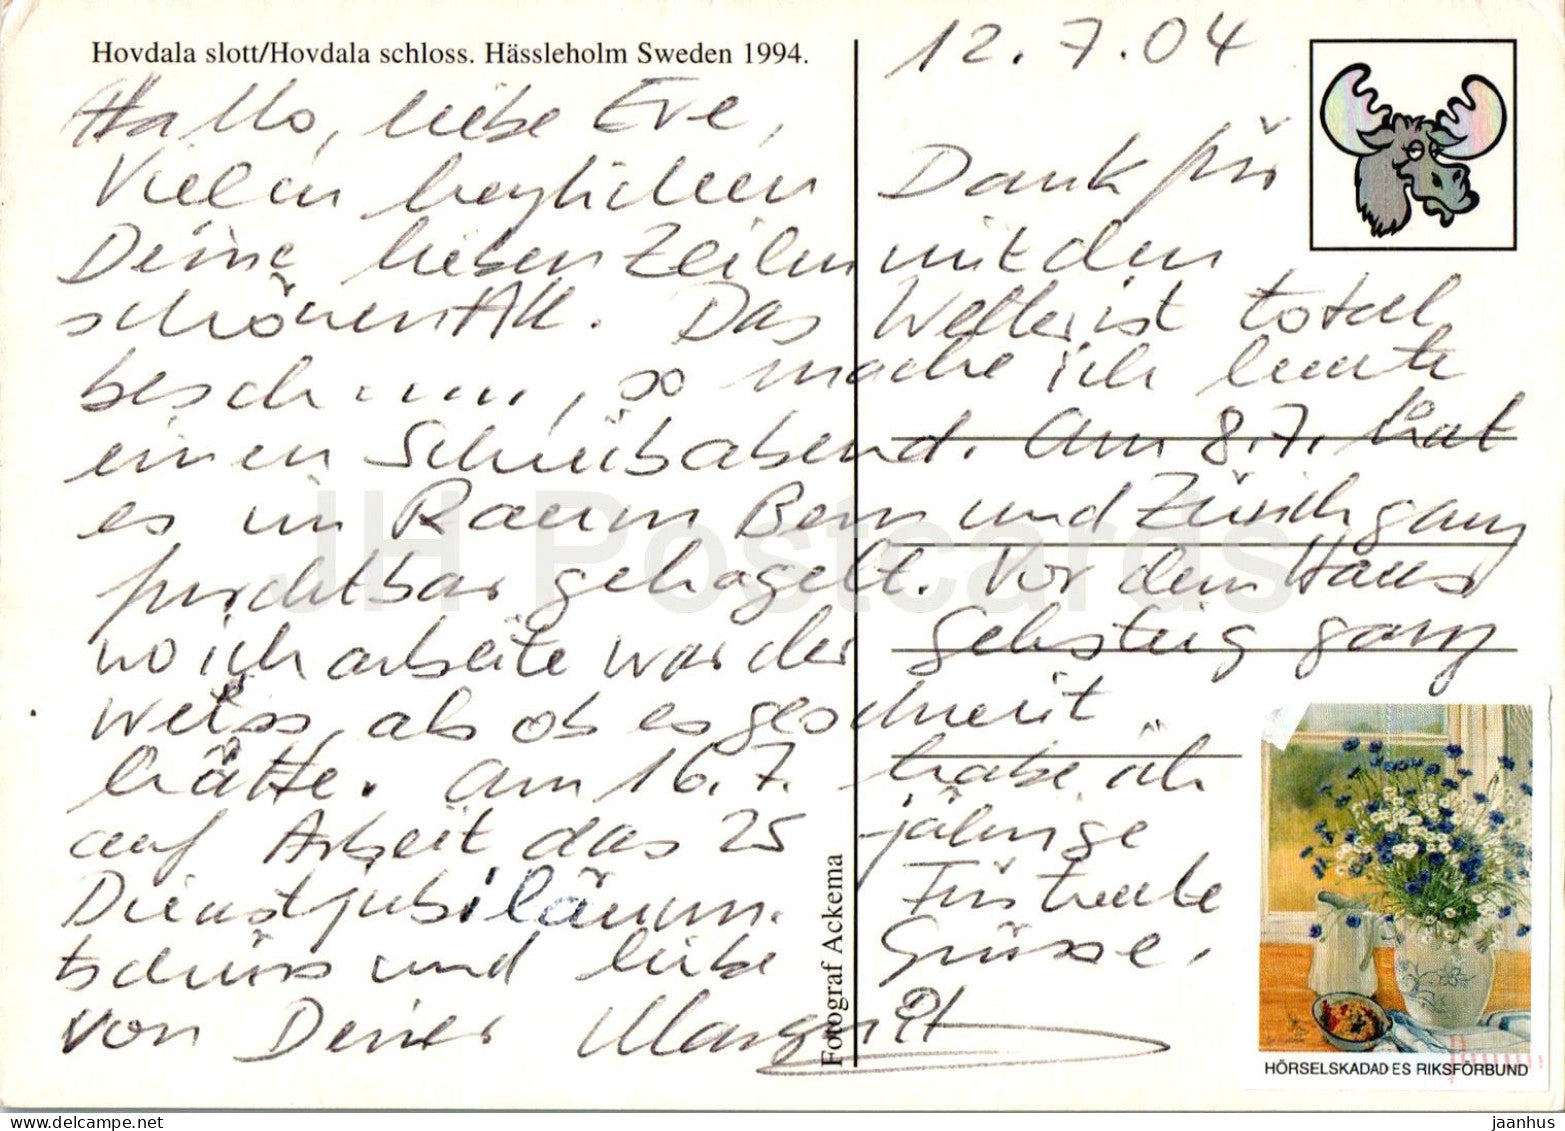 Hovdala slott/Hovdala schloss. Hässleholm Sweden 1994.
12.7.04
Hallo, liebe Eve,
Vielen herzlichen Dank für
Deine lieben Zeilen mit den
schönen AK. Das Wetter ist total
besch....., so mache ich heute
einen Schreibabend. Am 8.7. hat
es im Raum Bern und Zürich ganz
furchtbar gehagelt. Vor dem Haus
wo ich arbeite war der Gehsteig ganz
weiss, als ob es geschneit
hätte. Am 16.7. habe ich
auf Arbeit das 25 jährige
Dienstjubiläum. Für heute
tschüss und liebe Grüsse,
von Deiner Margrit
Fotograf Ackema
HÖRSELSKADADES RIKSFÖRBUND
JH Postcards
jaanhus